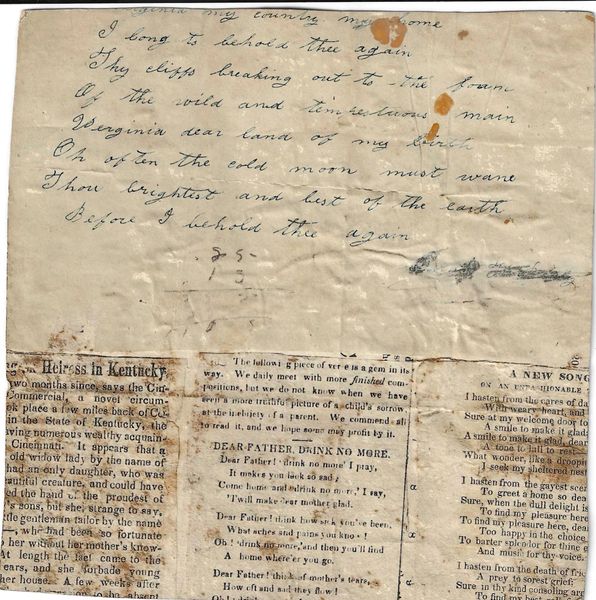 my country my home
I long to behold thee again
Thy cliffs breaking out to the foam
Of the wild and tempestuous main
Verginia dear land of my birth
Oh often the cold moon must wane
Thou brightest and best of the earth
Before I behold thee again
25
13
Heiress in Kentucky.
two months since, says the Cin-
Commercial, a novel circum-
ok place a few miles back of Co-
in the State of Kentucky, the
aving numerous wealthy acquain-
Cincinnati. It appears that a
old widow lady by the name of
had an only daughter, who was
autiful creature, and could have
ed the hand of the proudest of
's sons, but she, strange to say,
tle gentleman tailor by the name
—, who had been so fortunate
her without her mother's know-
At length the last came to the
ears, and she forbade young
her house. A few weeks after
The following piece of verse is a gem in its
way. We daily meet with more finished com-
positions, but we do not know when we have
seen a more truthful picture of a child's sorrow
at the inebiety of a parent. We commend all
to read it, and we hope some may profit by it.
DEAR FATHER, DRINK NO MORE.
Dear Father! drink no more I pray,
It makes you look so sad;
Come home and drink no more, I say,
'Twill make dear mother glad.
Dear Father! think how sick you've been,
What aches and pains you know!
Oh! drink no more, and then you'll find
A home where'er you go.
Dear Father! think of mother's tears,
How oft and sad they flow!
A NEW SONG
I hasten from the cares of da
With weary heart, and
Sure at my welcome door to
A smile to make it glad
A smile to make it glad, dear
A tone to lull to rest
What wonder, like a droopin
I seek my sheltered nest
I hasten from the gayest scen
To greet a home so dea
Sure, when the dull delight is
To find my pleasure here
To find my pleasure here, dea
Too happy in the choice
To barter splendor for thing o
And music for thy voice.
I hasten from the death of frie
A prey to sorest grief;
Sure in thy kind consoling ar